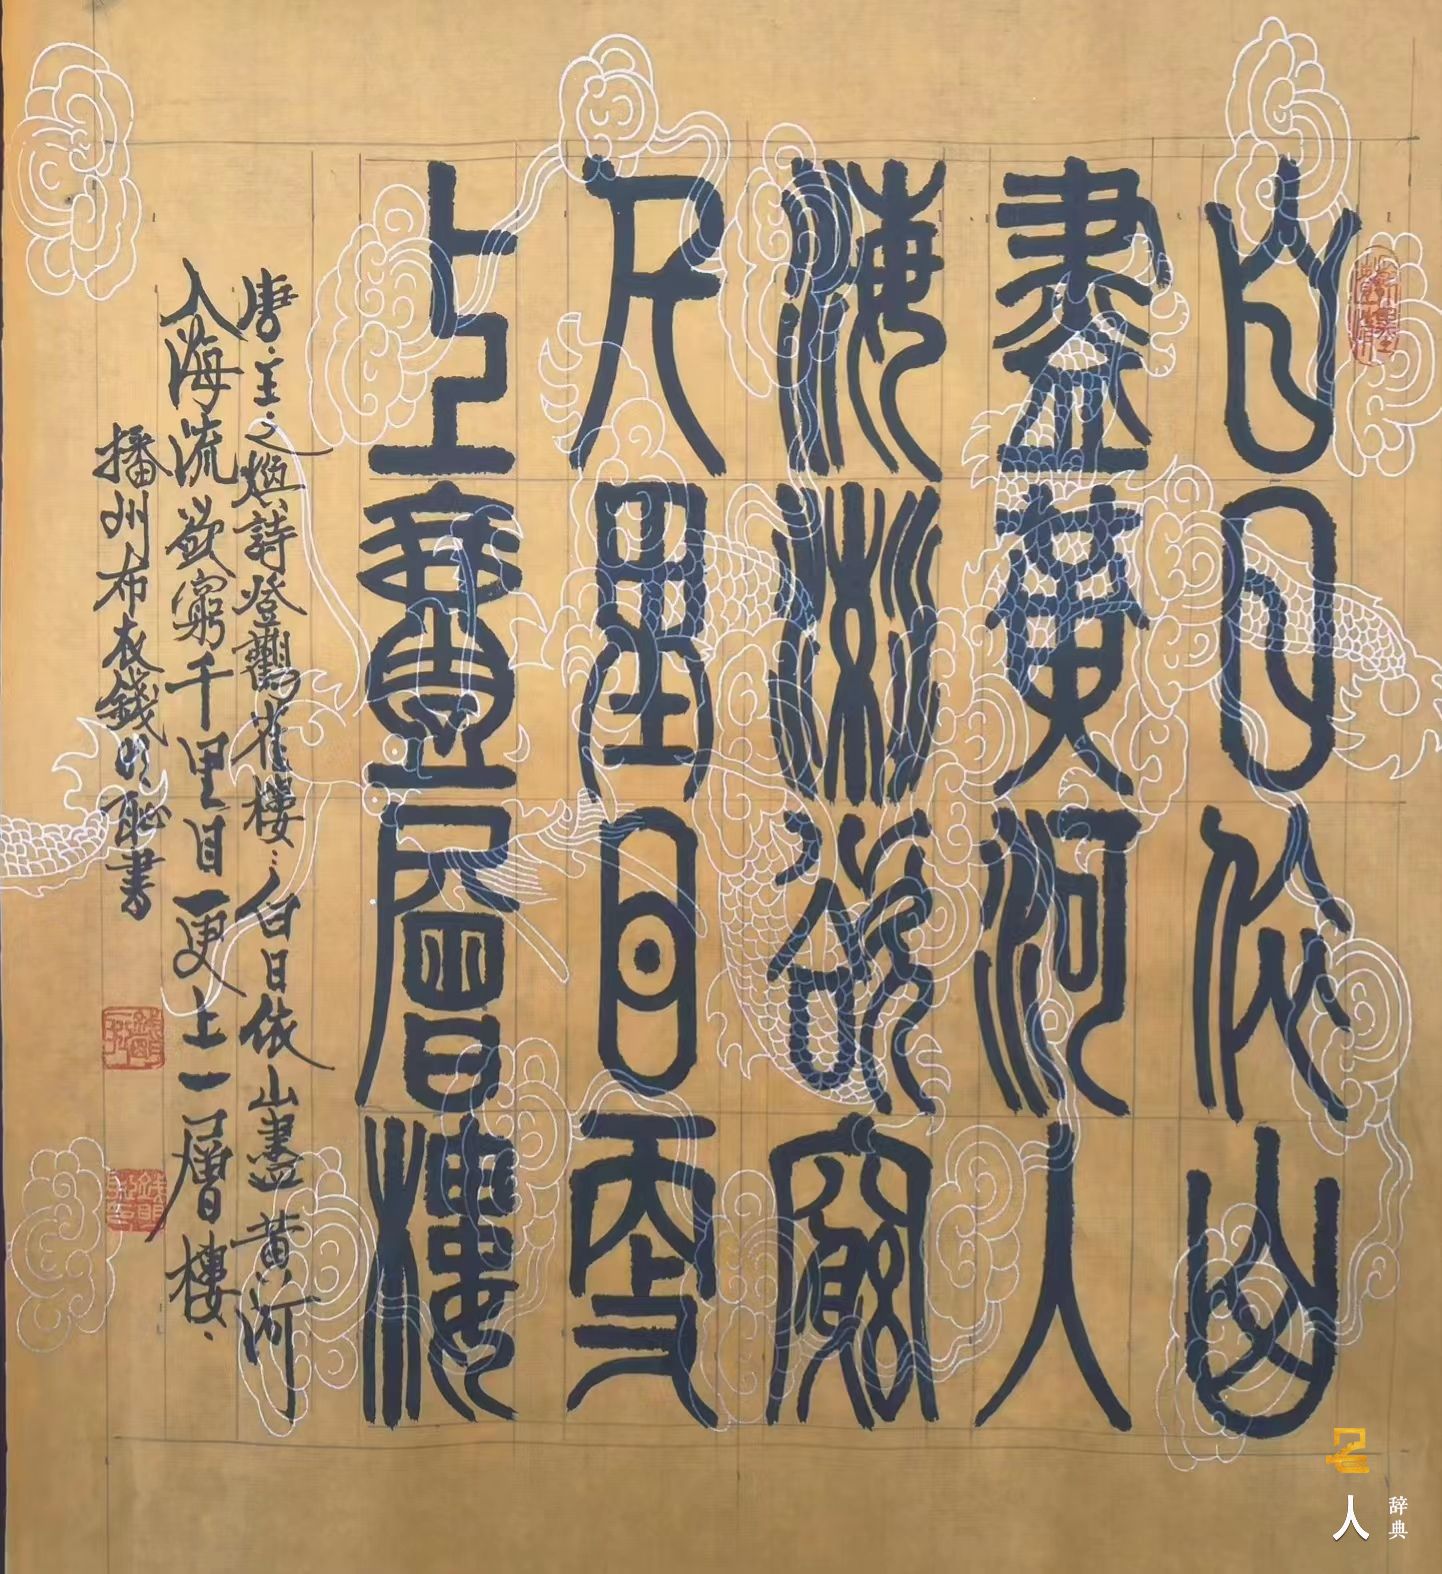 白日依山
盡黄河入
海流欲窮
千里目更
上壹層樓
唐·王之煥詩登鸛雀樓：白日依山盡黄河
入海流欲窮千里目更上一層樓·
播州布衣錢明恥書
名人
辞典